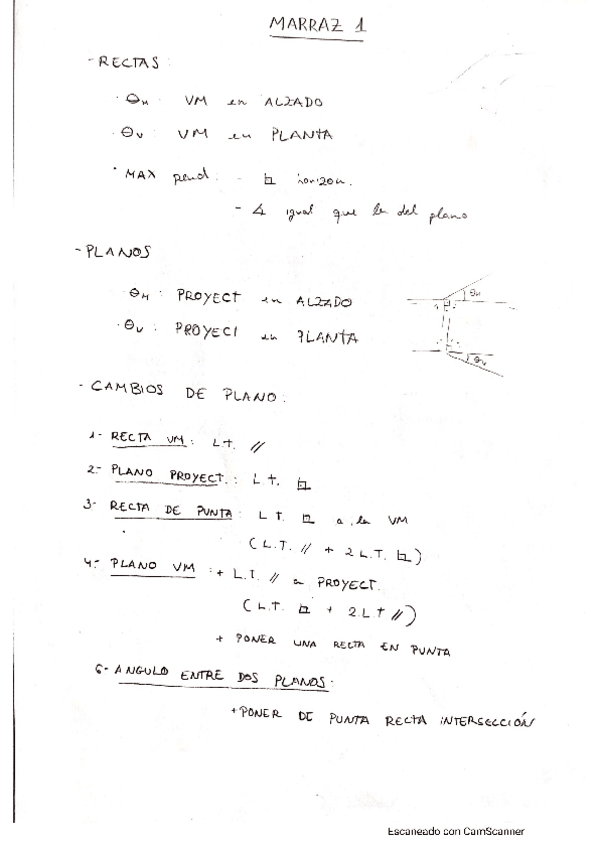 MARRAZ 1
- RECTAS:
· ΘH VM en ALZADO
· ΘV: VM en PLANTA
· MAX pend: - ⊥ horizon.
- ∡ igual que la del plano
- PLANOS
· ΘH: PROYECT en ALZADO
ΘH
· ΘV: PROYECT en PLANTA
ΘV
- CAMBIOS DE PLANO:
1- RECTA VM: L.T. //
2- PLANO PROYECT.: L.T. ⊥
3- RECTA DE PUNTA: L.T. ⊥ a la VM
(L.T. // + 2 L.T. ⊥)
4- PLANO VM: + L.T. // a PROYECT.
(L.T. ⊥ + 2 L.T. //)
+ PONER UNA RECTA EN PUNTA
6- ANGULO ENTRE DOS PLANOS:
+ PONER DE PUNTA RECTA INTERSECCIÓN
Escaneado con CamScanner